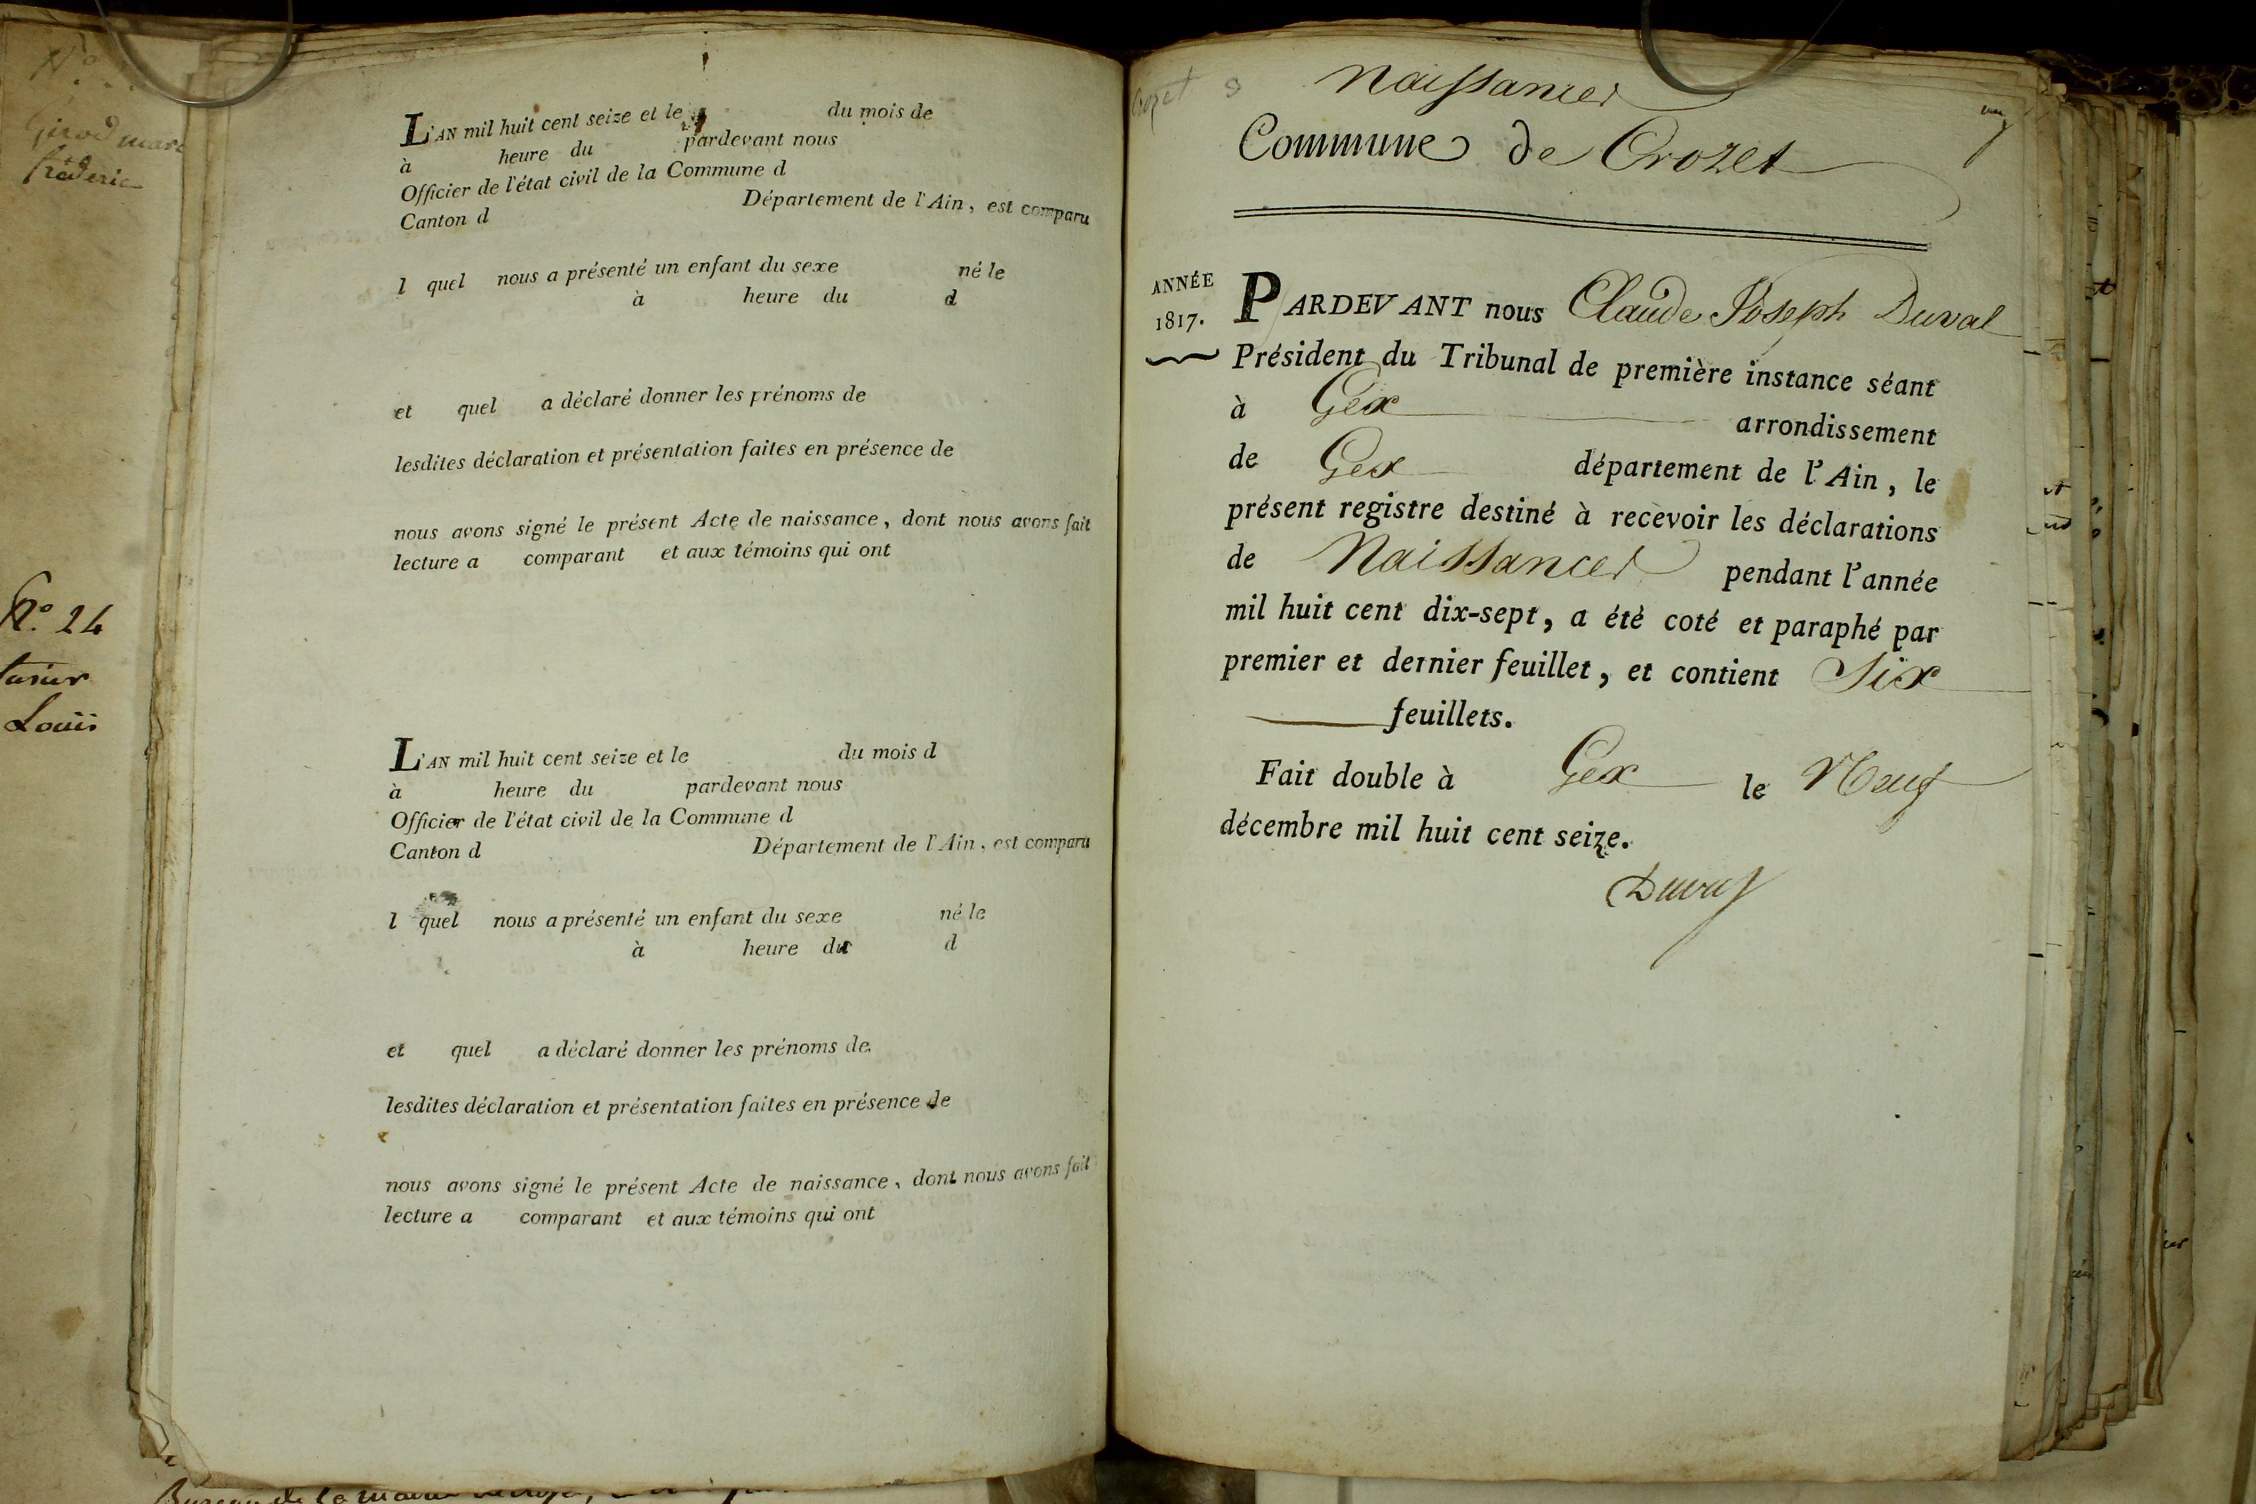 Girod marc
fréderic
N.º 24
Louis
L'AN mil huit cent seize et le du mois de
à heure du pardevant nous
Officier de l'état civil de la Commune d
Canton d Département de l'Ain, est comparu
l quel nous a présenté un enfant du sexe né le
à heure du d
et quel a déclaré donner les prénoms de
lesdites déclaration et présentation faites en présence de
nous avons signé le présent Acte de naissance, dont nous avons fait
lecture a comparant et aux témoins qui ont
L'AN mil huit cent seize et le du mois d
à heure du pardevant nous
Officier de l'état civil de la Commune d
Canton d Département de l'Ain, est comparu
l quel nous a présenté un enfant du sexe né le
à heure du d
et quel a déclaré donner les prénoms de
lesdites déclaration et présentation faites en présence de
nous avons signé le présent Acte de naissance, dont nous avons fait
lecture a comparant et aux témoins qui ont
Crozet
Naissances
Commune de Crozet
ANNÉE
1817.
PARDEVANT nous Claude Joseph Duval
Président du Tribunal de première instance séant
à Gex arrondissement
de Gex département de l'Ain, le
présent registre destiné à recevoir les déclarations
de Naissances pendant l'année
mil huit cent dix-sept, a été coté et paraphé par
premier et dernier feuillet, et contient Six
feuillets.
Fait double à Gex le Neuf
décembre mil huit cent seize.
Duval